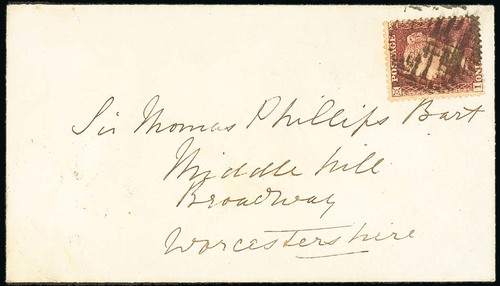 POSTAGE
ONE
Sir Thomas Phillips Bart
Middle hill
Broadway
Worcestershire